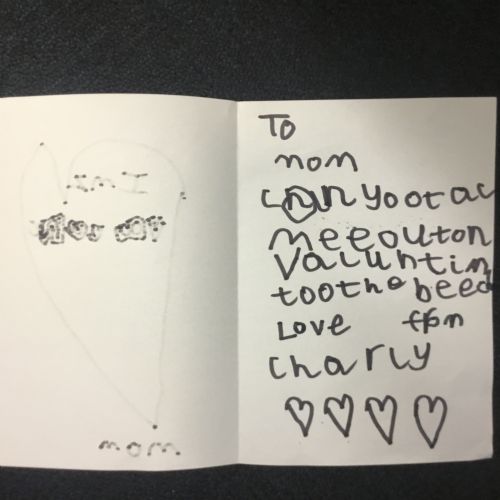 mom
To
mom
can yoo tac
mee out on
Valuntin
too the beec
Love
charly